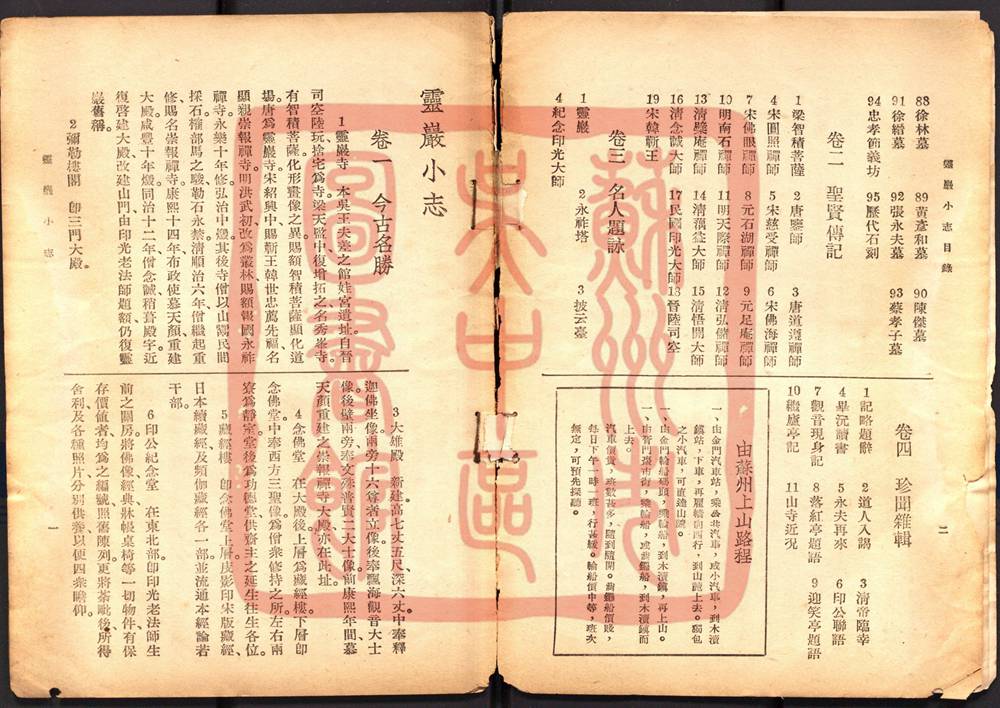 靈巖小志目錄
88徐林墓 89黃彥和墓 90陳傑墓
91徐縉墓 92張永夫墓 93蔡孝子墓
94忠孝節義坊 95歷代石刻
卷二 聖賢傳記
1梁智積菩薩 2唐鑒師 3唐道遵禪師
4宋圓照禪師 5宋慈受禪師 6宋佛海禪師
7宋佛眼禪師 8元石湖禪師 9元足庵禪師
10明南石禪師 11明天際禪師 12清弘儲禪師
13清檗庵禪師 14清蕅益大師 15清悟開大師
16清念誠大師 17民國印光大師 18晉陸司空
19宋韓蘄王
卷三 名人題詠
1靈巖 2永祚塔 3披云臺
4紀念印光大師
二
卷四 珍聞雜輯
1記略題辭 2道人入謁 3清帝臨幸
4畢沅讀書 5永夫再來 6印公聯語
7觀音現身記 8落紅亭題語 9迎笑亭題語
10繼廬亭記 11山寺近況
由蘇州上山路程
一、由金門汽車站,乘公共汽車,或小汽車,到木瀆
鎮站,下車,再雇轎向西行,到山麓上去。獨包
之小汽車,可直達山麓。
一、由金門輪船碼頭,乘輪船,到木瀆鎮,再上山。
一、由胥門棗市街,乘輪船,或黃鱔船,到木瀆鎮而
上去。
汽車價貴,班數甚多,隨到隨開。黃鱔船價賤,
每日下午一時一班,行甚緩。輪船價中等,班次
無定,可預先探聽。
靈巖小志
卷一 今古名勝
1靈巖寺 本吳王夫差之館娃宮遺址。自晉
司空陸玩捨宅爲寺。梁天監中復增拓之,名秀峯寺。
有智積菩薩化形畫像之異,賜額智積菩薩顯化道
場。唐爲靈巖寺。宋紹興中賜蘄王韓世忠薦先福,名
顯親崇報禪寺。明洪武初改爲叢林,賜額報國永祚
禪寺。永樂十年修。弘治中燬。其後寺僧以山鬻民間
採石,權部馬之駿勒石永禁。清順治六年僧繼起重
修,賜名崇報禪寺。康熙十四年布政使慕天顏重建
大殿。咸豐十年燬。同治十二年僧念誠稍葺殿宇。近
復啓建大殿,改建山門,由印光老法師題額,仍復靈
巖舊稱。
2彌勒樓閣 即三門大殿。
靈巖小志
3大雄殿 新建。高七丈五尺,深六丈。中奉釋
迦佛坐像,兩旁十六尊者立像,後奉飄海觀音大士
像,後壁兩旁奉文殊普賢二大士像。前康熙年間慕
天顏重建之崇報禪寺大殿亦在此址。
4念佛堂 在大殿後,上層爲藏經樓,下層即
念佛堂。中奉西方三聖像,爲僧衆修持之所。左右兩
寮爲靜室。堂後爲功德堂,供齋主之延生往生各位。
5藏經樓 即念佛堂上層。庋影印宋版藏經、
日本續藏經及頻伽藏經各一部,並流通本經論若
干部。
6印公紀念堂 在東北部。卽印光老法師生
前之關房。將佛像經典牀帳桌椅等一切物件有保
存價値者,均爲之編號,照舊陳列。更將茶毗後所得
舍利及各種照片,分別供養,以便四衆瞻仰。
一
蘇州市吳中區圖書館